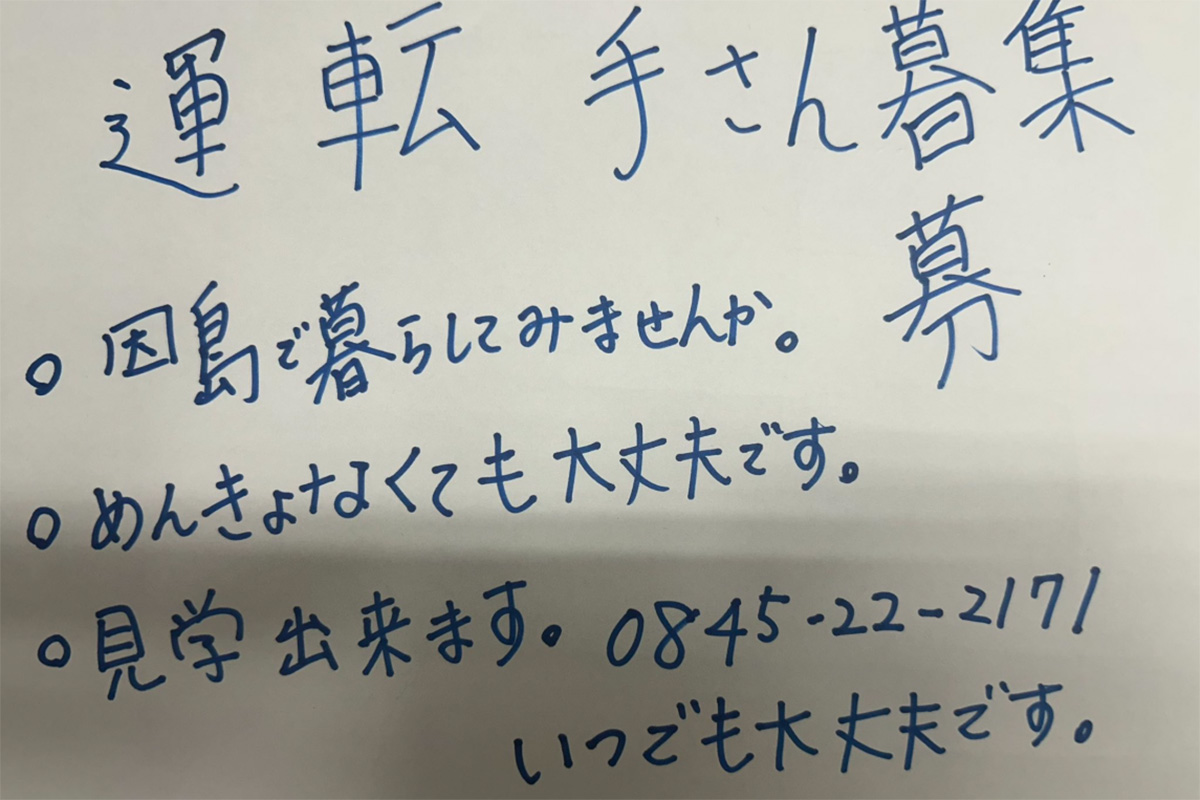 運転手さん暮集
募
○ 因島で暮らしてみませんか。
○ めんきょなくても大丈夫です。
○ 見学出来ます。0845-22-2171
いつでも大丈夫です。